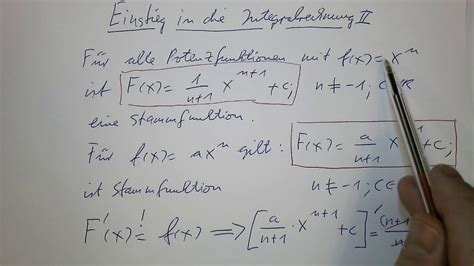 Einstieg in die Integralrechnung II
Für alle Potenzfunktionen mit f(x)=x^n
ist F(x)= 1/(n+1) x^(n+1) +c; n≠-1; c R
eine Stammfunktion.
Für f(x)= ax^n gilt: F(x)= a/(n+1) x +c;
ist Stammfunktion n≠-1; c∈
F'(x) =! f(x) => [a/(n+1) · x^(n+1) +c]' = (n+1)